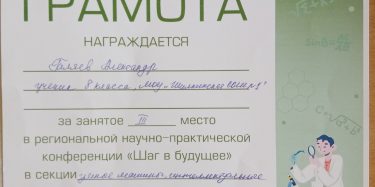 ГРАМОТА
НАГРАЖДАЕТСЯ
Беляев Александр
ученик 8 класса, МОУ "Шилкинская СОШ №1"
за занятое III место
в региональной научно-практической
конференции «Шаг в будущее»
в секции умные машины, интеллектуальные